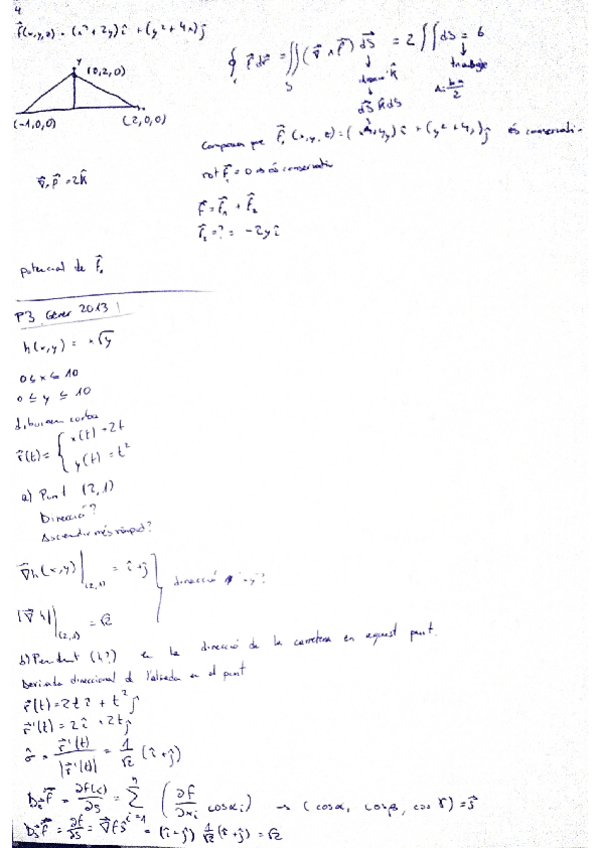 4
f⃗(x,y,z) = (x² + 2y) î + (y² + 4x) ĵ
y
(0,2,0)
(-1,0,0) (2,0,0)
∮ F⃗ dr⃗ = ∬ (∇⃗ × F⃗) dS⃗ = 2 ∬ dS = 6
S
k̂
triangle
A = ba/2
∇⃗ × F⃗ = 2k̂
és conservatiu
rot F⃗₁ = 0 ⇒ és conservatiu
F⃗ = F⃗₁ + F⃗₂
F⃗₂ = ? = -2y î
potencial de F⃗₁
P3 Gener 2013
h(x,y) = x√y
0 ≤ x ≤ 10
0 ≤ y ≤ 10
dibuixem corba
r⃗(t) = { x(t) = 2t
y(t) = t²
a) Punt (2,1)
Direcció?
Ascendir més ràpid?
∇⃗h(x,y) |(2,1) = î + ĵ
direcció
|∇⃗h| |(2,1) = √2
b) Pendent (h?) en la direcció de la carretera en aquest punt.
Derivada direccional de l'alçada en el punt
r⃗(t) = 2t î + t² ĵ
r⃗'(t) = 2 î + 2t ĵ
σ̂ = r⃗'(t) / |r⃗'(t)| = 1/√2 (î + ĵ)
D F⃗ = ∂f(x)/∂s = Σ (∂f/∂xᵢ cos αᵢ) → (cos α, cos β, cos γ) = s⃗
n
i=1
D F⃗ = ∂f/∂s = ∇⃗f ŝ = (î + ĵ) 1/√2 (î + ĵ) = √2